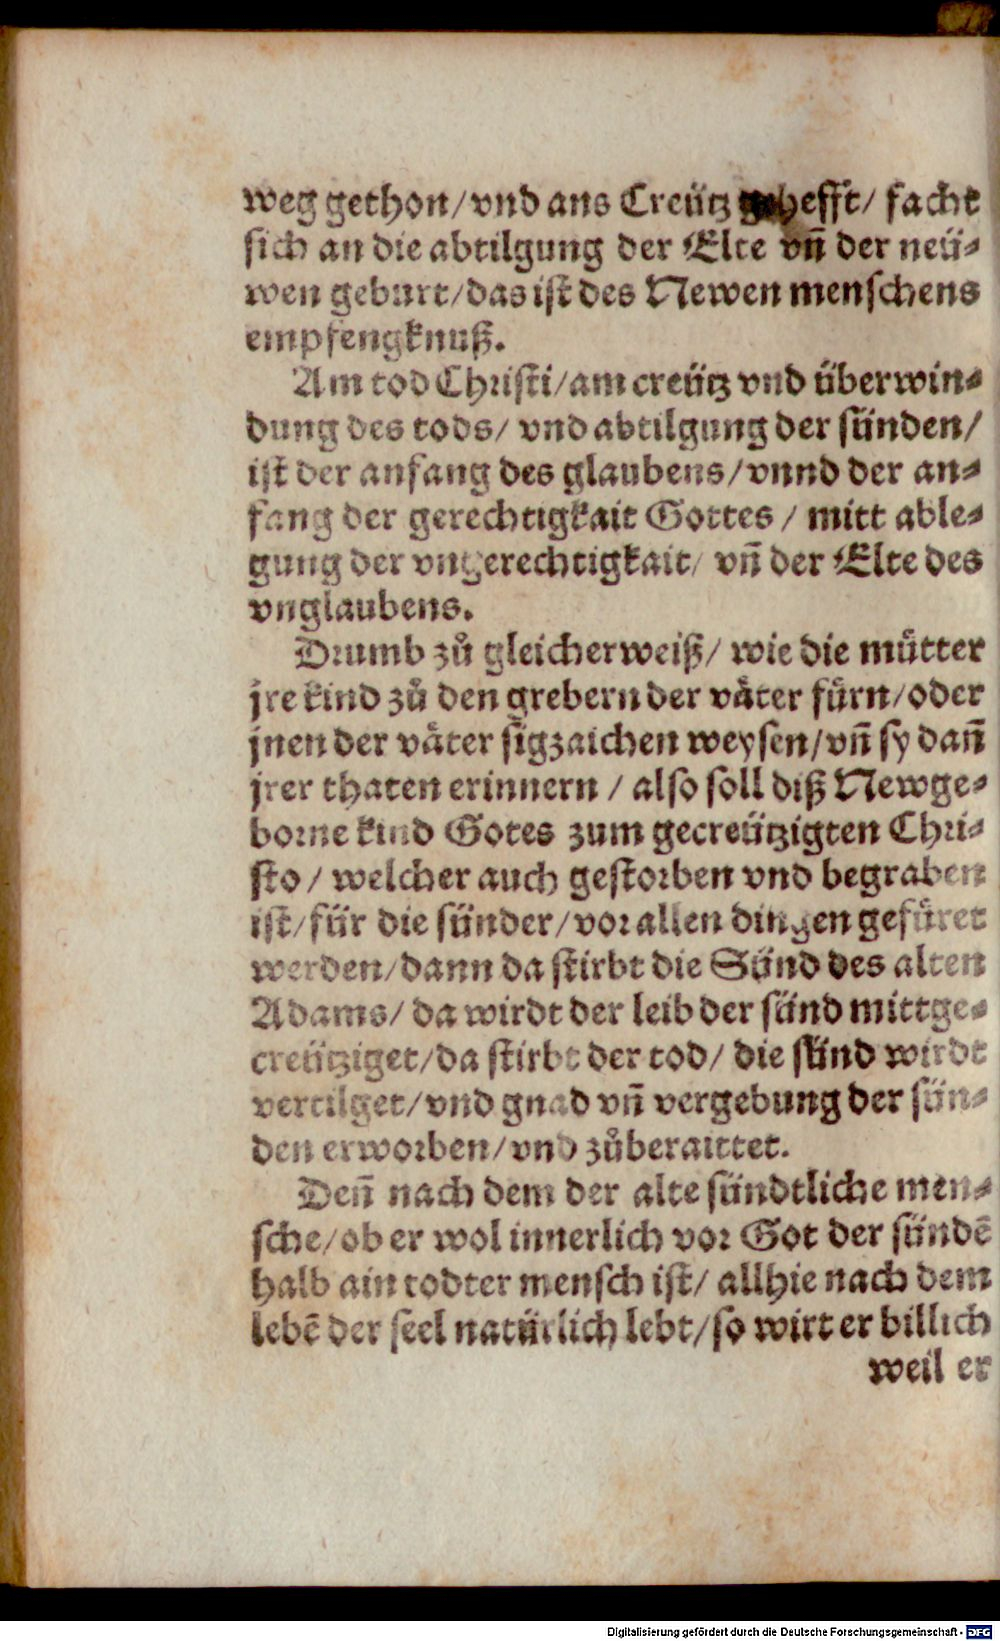 weg gethon/ vnd ans Creütz gehefft/ facht
sich an die abtilgung der Elte vñ der neü⸗
wen geburt/ das ist des Newen menschens
empfengknuß.
Am tod Christi/ am creütz vnd überwin⸗
dung des tods/ vnd abtilgung der sünden/
ist der anfang des glaubens/ vnnd der an⸗
fang der gerechtigkait Gottes / mitt able⸗
gung der vngerechtigkait/ vñ der Elte des
vnglaubens.
Drumb zů gleicherweiß/ wie die mütter
jre kind zů den grebern der väter fürn/ oder
jnen der väter sigzaichen weysen/ vñ sy dañ
jrer thaten erinnern / also soll diß Newge⸗
borne kind Gotes zum gecreützigten Chri⸗
sto / welcher auch gestorben vnd begraben
ist/ für die sünder/ vor allen dingen gefüret
werden/ dann da stirbt die Sünd des alten
Adams/ da wirdt der leib der sünd mittge⸗
creütziget/ da stirbt der tod/ die sünd wirdt
vertilget/ vnd gnad vñ vergebung der sün⸗
den erworben/ vnd zůberaittet.
Deñ nach dem der alte sündtliche men⸗
sche/ ob er wol innerlich vor Got der sündẽ
halb ain todter mensch ist/ allhie nach dem
lebẽ der seel natürlich lebt/ so wirt er billich
weil er
Digitalisierung gefördert durch die Deutsche Forschungsgemeinschaft - DFG